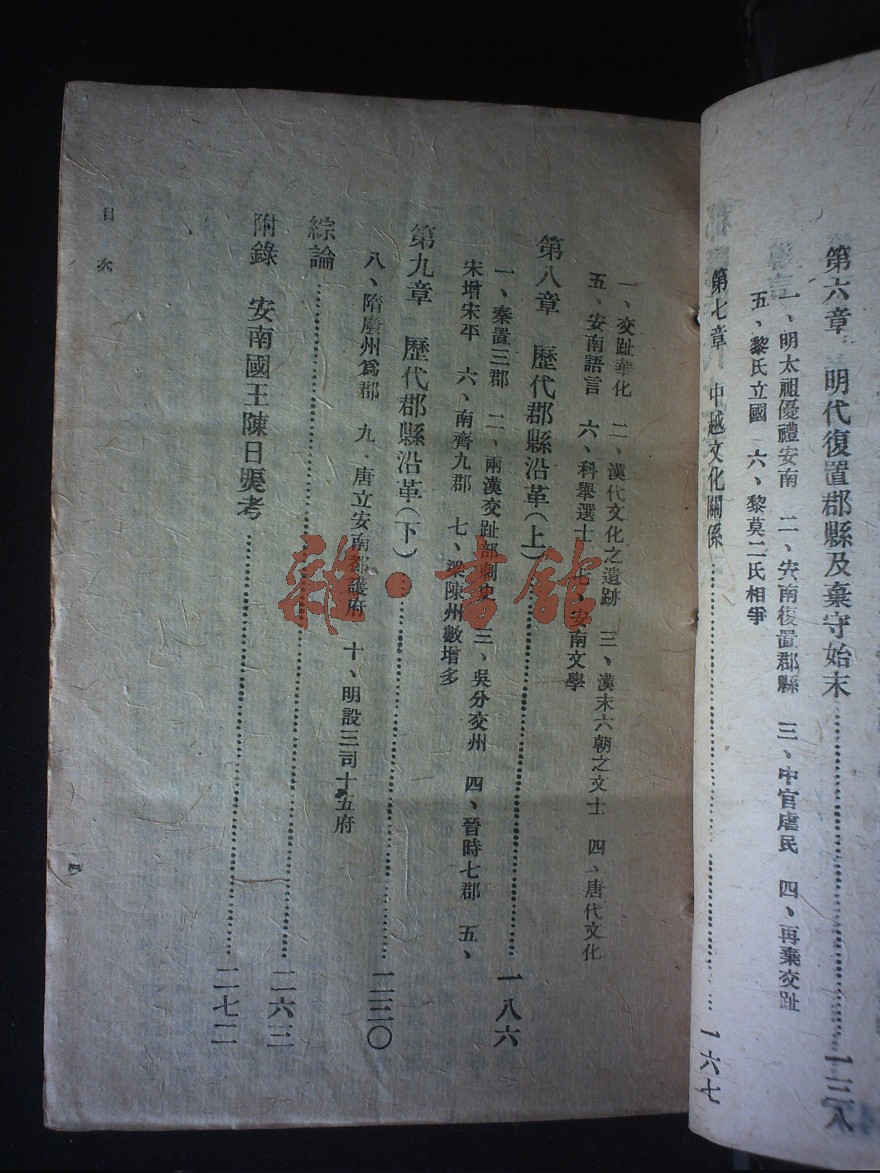 第六章 明代復置郡縣及棄守始末……一三八
一、明太祖優禮安南 二、安南復置郡縣 三、中官虐民 四、再棄交趾
五、黎氏立國 六、黎莫二氏相爭
第七章 中越文化關係……一六七
一、交趾華化 二、漢代文化之遺跡 三、漢末六朝之文士 四、唐代文化
五、安南語言 六、科舉選士 七、安南文學
第八章 歷代郡縣沿革(上)……一八六
一、秦置三郡 二、兩漢交趾部刺史 三、吳分交州 四、晉時七郡 五、
宋增宋平 六、南齊九郡 七、梁陳州數增多
第九章 歷代郡縣沿革(下)……二三〇
八、隋廢州爲郡 九、唐立安南都護府 十、明設三司十五府
綜論……二六三
附錄 安南國王陳日煚考……二七二
目次
四
雜·書館